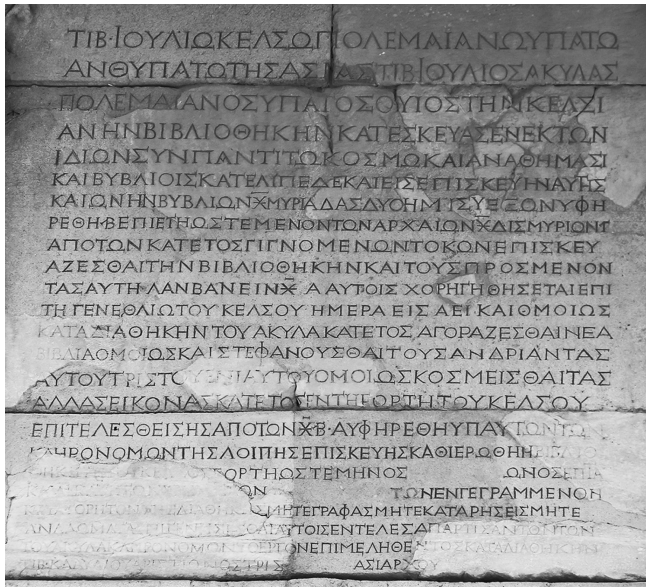 ΤΙΒ·ΙΟΥΛΙΩΚΕΛΣΩΠΤΟΛΕΜΑΙΑΝΩΥΠΑΤΩ
ΑΝΘΥΠΑΤΩΤΗΣΑΣΙΑΣΤΙΒΙΟΥΛΙΟΣΑΚΥΛΑΣ
ΠΟΛΕΜΑΙΑΝΟΣΥΠΑΤΟΣΟΥΙΟΣΤΗΝΚΕΛΣΙ
ΑΝΗΝΒΙΒΛΙΟΘΗΚΗΝΚΑΤΕΣΚΕΥΑΣΕΝΕΚΤΩΝ
ΙΔΙΩΝΣΥΝΠΑΝΤΙΤΩΚΟΣΜΩΚΑΙΑΝΑΘΗΜΑΣΙ
ΚΑΙΒΥΒΛΙΟΙΣΚΑΤΕΛΙΠΕΔΕΚΑΙΕΙΣΕΠΙΣΚΕΥΗΝΑΥΤΗΣ
ΚΑΙΩΝΗΝΒΥΒΛΙΩΝΜΥΡΙΑΔΑΣΔΥΟΗΜΙΣΥΕΞΩΝΥΦΗ
ΡΕΘΗ·ΒΕΠΙΕΤΗΩΣΤΕΜΕΝΟΝΤΩΝΑΡΧΑΙΩΝΔΙΣΜΥΡΙΩΝΤ
ΑΠΟΤΩΝΚΑΤΕΤΟΣΓΙΓΝΟΜΕΝΩΝΤΟΚΩΝΕΠΙΣΚΕΥ
ΑΖΕΣΘΑΙΤΗΝΒΙΒΛΙΟΘΗΚΗΝΚΑΙΤΟΥΣΠΡΟΣΜΕΝΟΝ
ΤΑΣΑΥΤΗ·ΛΑΝΒΑΝΕΙΝ Α ΑΥΤΟΙΣ ΧΟΡΗΓΗΘΗΣΕΤΑΙΕΠΙ
ΤΗΓΕΝΕΘΛΙΩΤΟΥΚΕΛΣΟΥ ΗΜΕΡΑΕΙΣΑΕΙΚΑΙΘΜΟΙΩΣ
ΚΑΤΑΔΙΑΘΗΚΗΝΤΟΥΑΚΥΛΑΚΑΤΕΤΟΣΑΓΟΡΑΖΕΣΘΑΙΝΕΑ
ΒΙΒΛΙΑΟΜΟΙΩΣΚΑΙΣΤΕΦΑΝΟΥΣΘΑΙΤΟΥΣΑΝΔΡΙΑΝΤΑΣ
ΑΥΤΟΥΤΡΙΣΤΟΥΕΝΙΑΥΤΟΥΟΜΟΙΩΣΚΟΣΜΕΙΣΘΑΙΤΑΣ
ΑΛΛΑΣΕΙΚΟΝΑΣΚΑΤΕΤΟΣΕΝΤΗΕΟΡΤΗΤΟΥΚΕΛΣΟΥ
ΕΠΙΤΕΛΕΣΘΕΙΣΗΣΑΠΟΤΩΝΒ·ΑΥΦΗΡΕΘΗΥΠΑΥΤΩΝΤΩΝ
ΚΛΗΡΟΝΟΜΩΝΤΗΣΛΟΙΠΗΣΕΠΙΣΚΕΥΗΣΚΑΘΙΕΡΩΘΗΗ
ΕΟΡΤΗΩΣΤΕΜΗΝΟΣ ΩΝΟΣ
ΤΩΝΕΝΓΕΓΡΑΜΜΕΝΟΝ
ΜΗΤΕΓΡΑΦΑΣΜΗΤΕΚΑΤΑΡΗΣΕΙΣΜΗΤΕ
ΑΥΤΟΙΣΕΝΤΕΛΕΣΑΠΑΡΤΙΣΑΝΤΩΝΤΩΝ
ΕΠΙΜΕΛΗΘΕΝΤΟΣΚΑΤΑΔΙΑΘΗΚΗΝ
ΑΣΙΑΡΧΟΥ